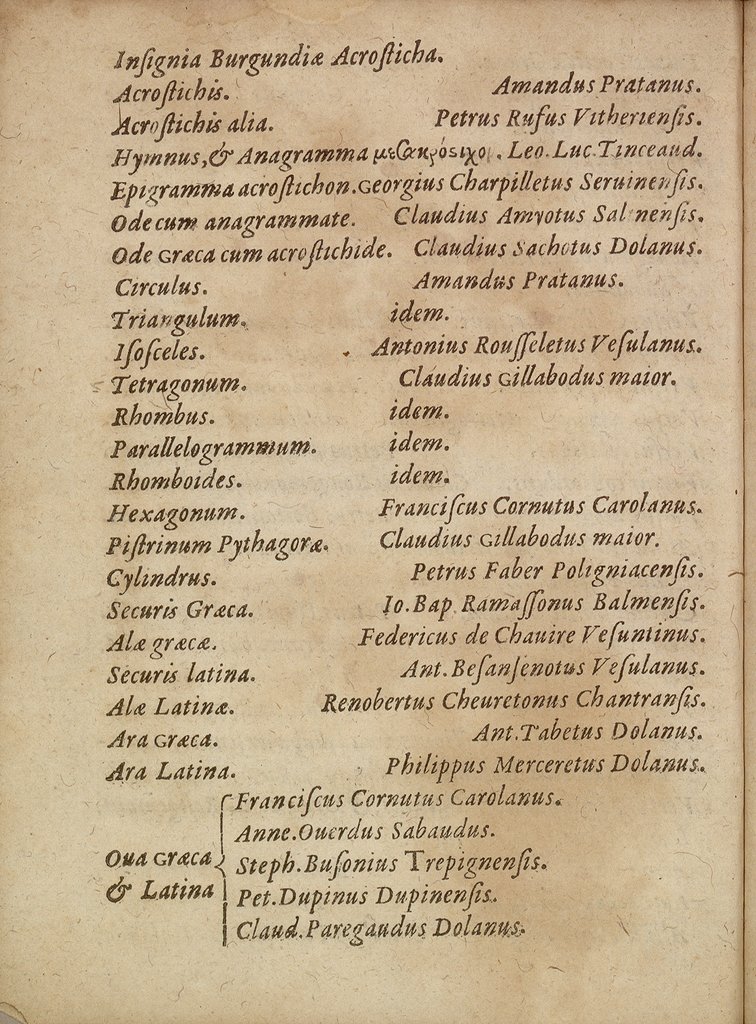 Inſignia Burgundiæ Acroſticha.
Acroſtichis. Amandus Pratanus.
Acroſtichis alia. Petrus Rufus Vitherienſis.
Hymnus, & Anagramma Leo. Luc. Tinceaud.
Epigramma acroſtichon. Georgius Charpilletus Seruinenſis.
Ode cum anagrammate. Claudius Amyotus Salinenſis.
Ode Græca cum acroſtichide. Claudius Sachotus Dolanus.
Circulus. Amandus Pratanus.
Triangulum. idem.
Iſoſceles. Antonius Rouſſeletus Veſulanus.
Tetragonum. Claudius Gillabodus maior.
Rhombus. idem.
Parallelogrammum. idem.
Rhomboides. idem.
Hexagonum. Franciſcus Cornutus Carolanus.
Piſtrinum Pythagoræ. Claudius Gillabodus maior.
Cylindrus. Petrus Faber Poligniacenſis.
Securis Græca. Io. Bap. Ramaſſonus Balmenſis.
Alæ græcæ. Federicus de Chauire Veſuntinus.
Securis latina. Ant. Beſanſenotus Veſulanus.
Alæ Latinæ. Renobertus Cheuretonus Chantranſis.
Ara Græca. Ant. Tabetus Dolanus.
Ara Latina. Philippus Merceretus Dolanus.
Oua Græca & Latina
Franciſcus Cornutus Carolanus.
Anne. Ouerdus Sabaudus.
Steph. Buſonius Trepignenſis.
Pet. Dupinus Dupinenſis.
Claud. Paregaudus Dolanus.